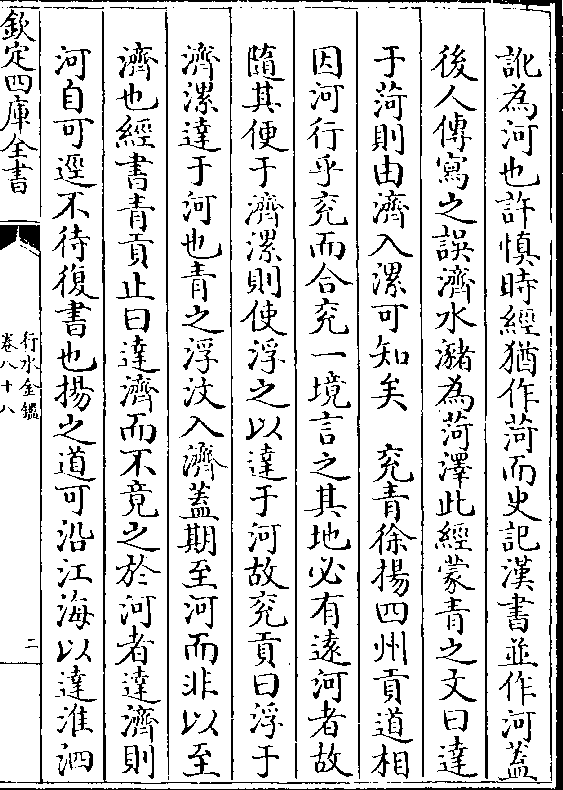 訛為河也許慎時經猶作菏而史記漢書並作河蓋
後人傳寫之誤濟水瀦為菏澤此經蒙青之文曰達
于菏則由濟入漯可知矣　兖青徐揚四州貢道相
因河行乎兖而合兖一境言之其地必有遠河者故
隨其便于濟漯則使浮之以達于河故兖貢曰浮于
濟漯達于河也青之浮汶入濟蓋期至河而非以至
濟也經書青貢止曰達濟而不竟之於河者達濟則
河自可逕不待復書也揚之道可沿江海以達淮泗
欽定四庫全書
行水金鑑
卷八十八
二